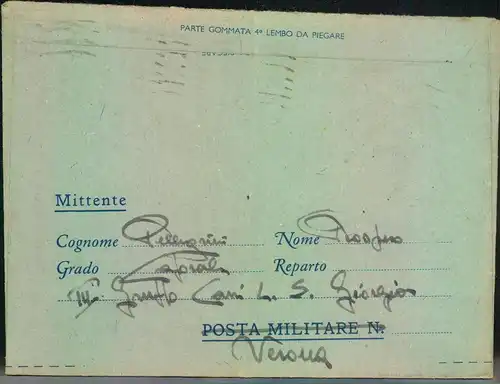 PARTE GOMMATA 4ª LEMBO DA PIEGARE
Mittente
Cognome Pellegrini Nome Prospero
Grado Caporale Reparto
III Gruppo Carri L. S. Giorgio
POSTA MILITARE N.
Verona